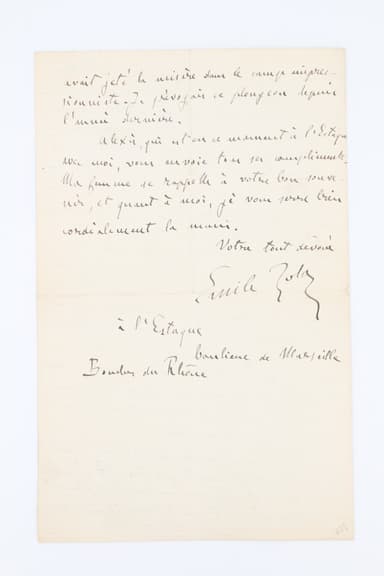 avait jeté la misère dans le camp impres-
sionniste. Je prévoyais ce plongeon depuis
l'année dernière.
Alexis, qui est en ce moment à l'Estaque
avec moi, vous envoie tous ses compliments.
Ma femme se rappelle à votre bon souve-
nir, et quant à moi, je vous serre bien
cordialement la main.
Votre tout dévoué
Emile Zola
à l'Estaque
banlieue de Marseille
Bouches du Rhône